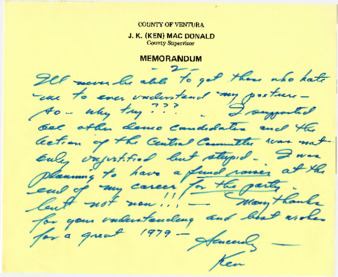 COUNTY OF VENTURA
J. K. (KEN) MAC DONALD
County Supervisor
MEMORANDUM
- 2 -
I'll never be able to get those who hate
me to ever understand my posture -
so - why try ??? - I supported
all other demo candidates and the
action of the Central Committee was not
only unjustified but stupid. I was
planning to have a fund raiser at the
end of my career for the party -
but not now!!! - Many thanks
for your understanding and best wishes
for a great 1979 -
Sincerely -
Ken